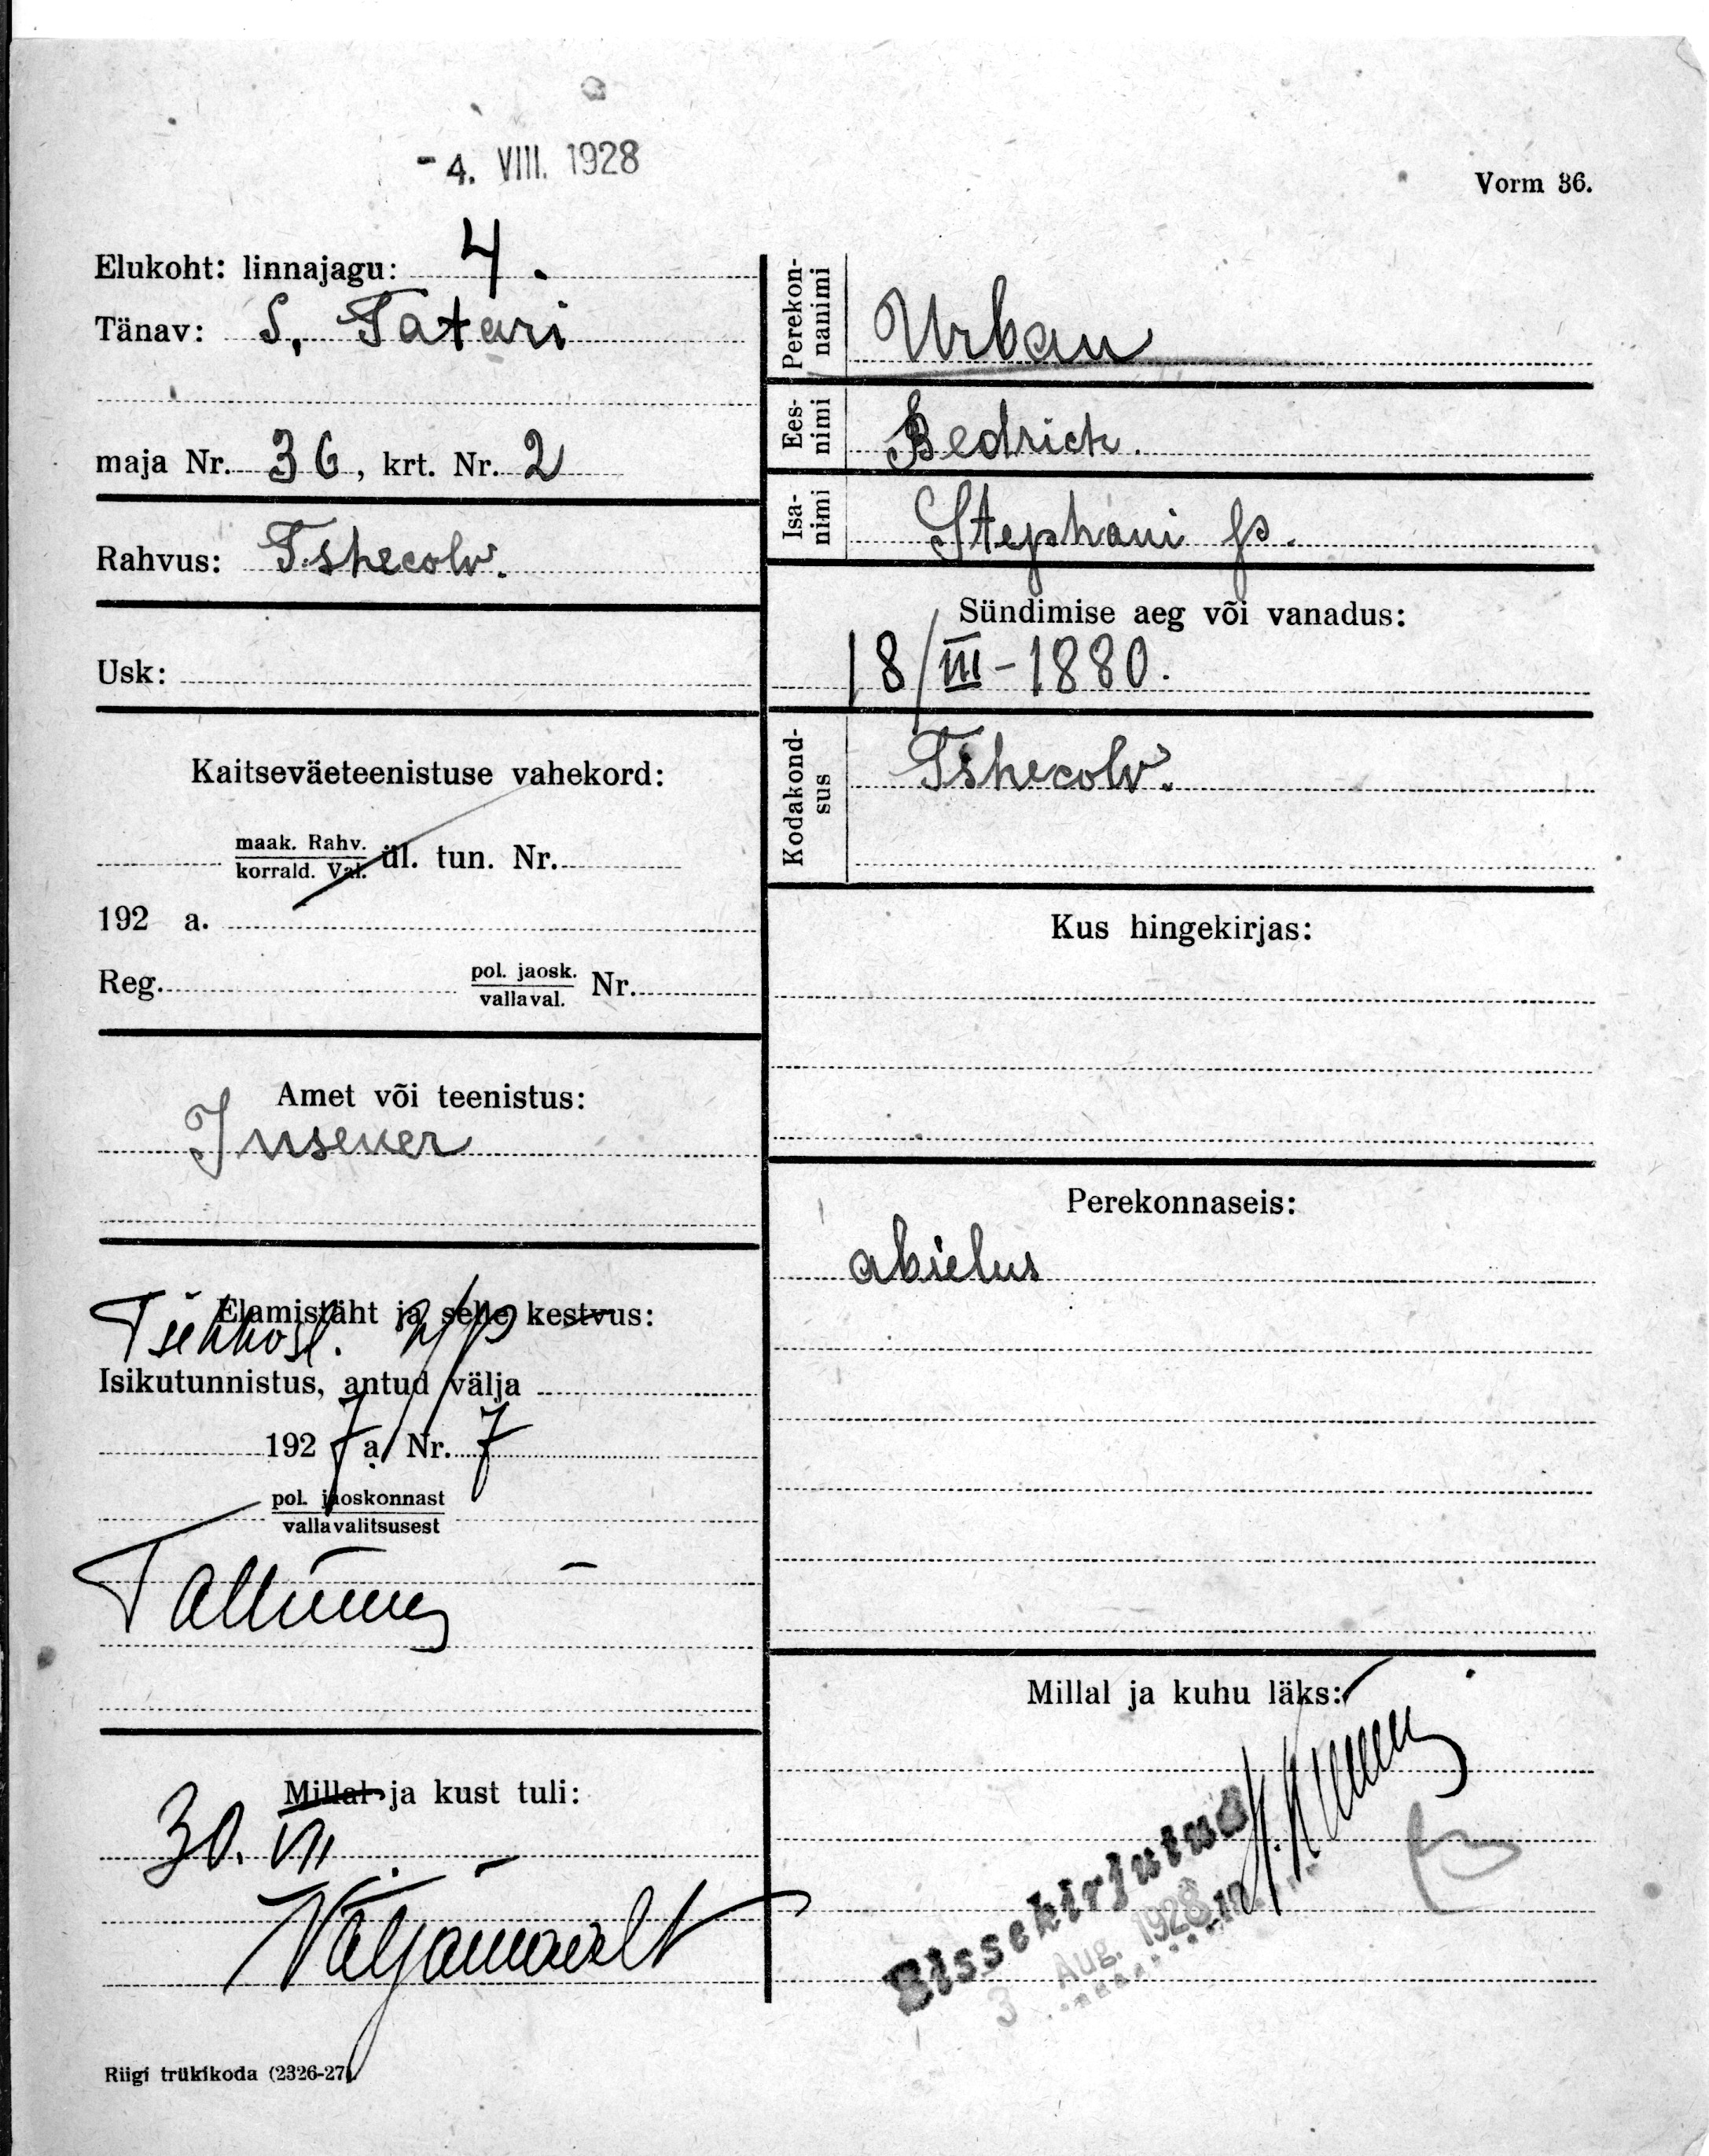 - 4. VIII. 1928
Vorm 36.
Elukoht: linnajagu: 4.
Tänav: S. Tatari
maja Nr. 36, krt. Nr. 2
Rahvus: Tshecolv.
Usk:
Kaitseväeteenistuse vahekord:
maak. Rahv.
korrald. Val. ül. tun. Nr.
192 a.
Reg. pol. jaosk. Nr.
vallaval.
Amet või teenistus:
Insener
Elamistäht ja selle kestvus:
Isikutunnistus, antud välja
1927 a. Nr. 7
pol. jaoskonnast
vallavalitsusest
Tallinnas
Millal ja kust tuli:
30. VII.
Väljamaalt
Riigi trükikoda (2326-27).
Perekon-
nanimi
Urban
Ees-
nimi
Bedrich.
Isa-
nimi
Stephani p.
Sündimise aeg või vanadus:
18/III-1880.
Kodakond-
sus
Tshecolv.
Kus hingekirjas:
Perekonnaseis:
abielus
Millal ja kuhu läks:
Sissekirjutud
3 Aug. 1928